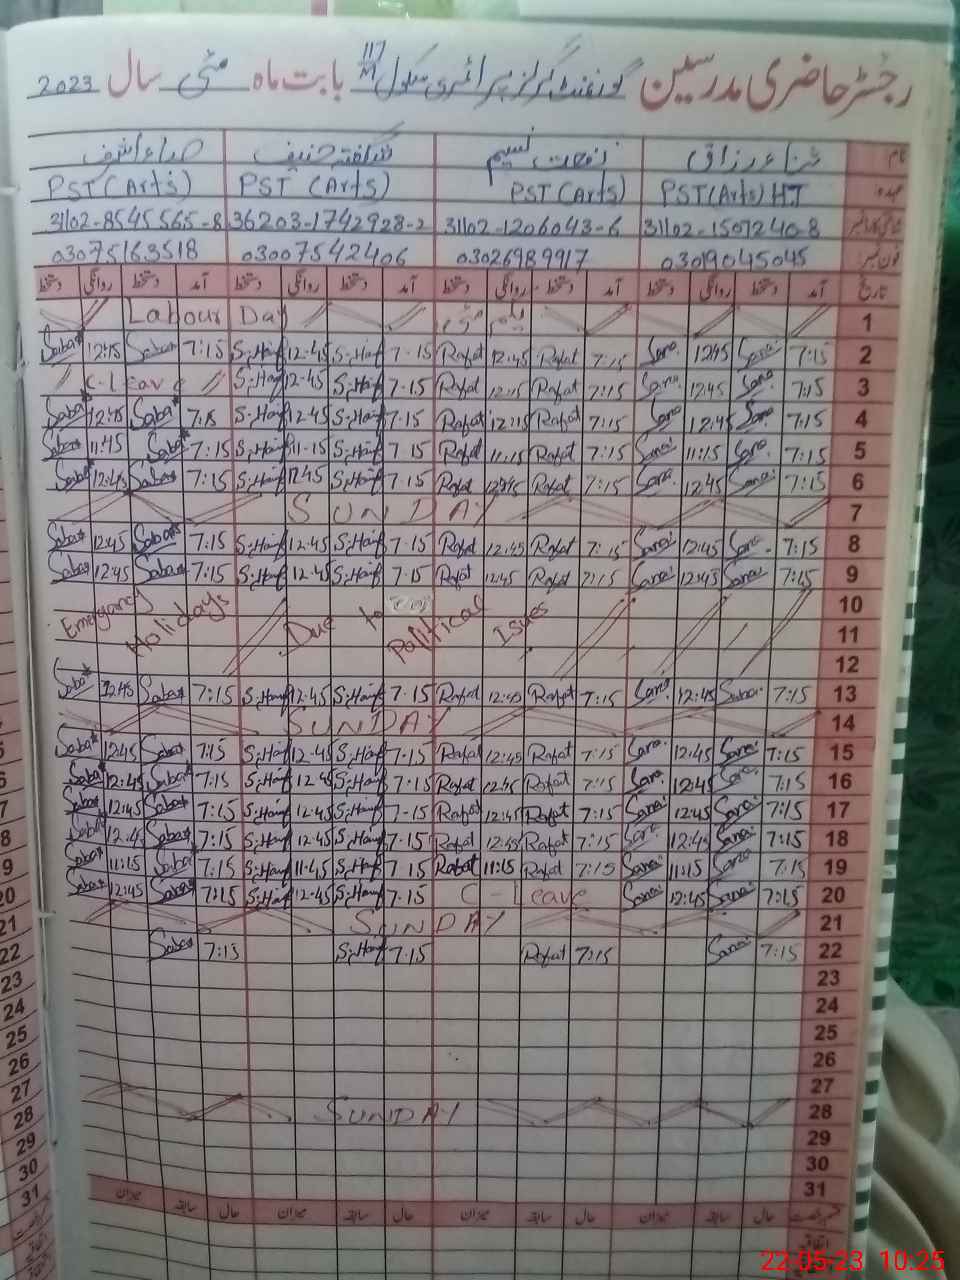 رجسٹر حاضری مدرسین گورنمنٹ گرلز پرائمری سکول 117/M بابت ماہ مئی سال 2023
نام ثناء رزاق رفعت نسیم شگفتہ حنیف صباء اشرف
عہدہ PST (Arts) H.T PST (Arts) PST (Arts) PST (Arts)
شناختی کارڈ نمبر 31102-1507240-8 31102-1206043-6 36203-1742928-2 31102-8545565-8
فون نمبر 03019045045 03026989917 03007542406 03075163518
تاریخ آمد دستخط روانگی دستخط آمد دستخط روانگی دستخط آمد دستخط روانگی دستخط آمد دستخط روانگی دستخط
Labour Day یکم مئی 1
Saba 12:45 Saba 7:15 S.Hanif 12-45 S.Hanif 7-15 Rafat 12:45 Rafat 7:15 Sana 12:45 Sana 7:15 2
C-Leave S.Hanif 12-45 S.Hanif 7-15 Rafat 12:45 Rafat 7:15 Sana 12:45 Sana 7:15 3
Saba 12:45 Saba 7:15 S.Hanif 12-45 S.Hanif 7-15 Rafat 12:15 Rafat 7:15 Sana 12:45 Sana 7:15 4
Saba 11:45 Saba 7:15 S.Hanif 11-15 S.Hanif 7 15 Rafat 11:15 Rafat 7:15 Sana 11:15 Sana 7:15 5
Saba 12:45 Saba 7:15 S.Hanif 12 45 S.Hanif 7-15 Rafat 12:45 Rafat 7:15 Sana 12:45 Sana 7:15 6
SUNDAY 7
Saba 12:45 Saba 7:15 S.Hanif 12-45 S.Hanif 7-15 Rafat 12:45 Rafat 7:15 Sana 12:45 Sana 7:15 8
Saba 12:45 Saba 7:15 S.Hanif 12-45 S.Hanif 7-15 Rafat 12:45 Rafat 7:15 Sana 12:45 Sana 7:15 9
Emergancy Holidays Due to Political Isues 10
11
12
Saba 12:45 Saba 7:15 S.Hanif 12-45 S.Hanif 7-15 Rafat 12:45 Rafat 7:15 Sana 12:45 Sana 7:15 13
SUNDAY 14
Saba 12:45 Saba 7:15 S.Hanif 12-45 S.Hanif 7-15 Rafat 12:45 Rafat 7:15 Sana 12:45 Sana 7:15 15
Saba 12:45 Saba 7:15 S.Hanif 12-45 S.Hanif 7-15 Rafat 12:45 Rafat 7:15 Sana 12:45 Sana 7:15 16
Saba 12:45 Saba 7:15 S.Hanif 12-45 S.Hanif 7-15 Rafat 12:45 Rafat 7:15 Sana 12:45 Sana 7:15 17
Saba 12:45 Saba 7:15 S.Hanif 12-45 S.Hanif 7-15 Rafat 12:45 Rafat 7:15 Sana 12:45 Sana 7:15 18
Saba 11:15 Saba 7:15 S.Hanif 11-45 S.Hanif 7 15 Rafat 11:15 Rafat 7:15 Sana 11:15 Sana 7:15 19
Saba 12:45 Saba 7:15 S.Hanif 12-45 S.Hanif 7-15 C-Leave Sana 12:45 Sana 7:15 20
SUNDAY 21
Saba 7:15 S.Hanif 7-15 Rafat 7:15 Sana 7:15 22
23
24
25
26
27
SUNDAY 28
29
30
31
حال سابقہ میزان حال سابقہ میزان حال سابقہ میزان حال سابقہ میزان
اتفاقیہ
22-05-23 10:25